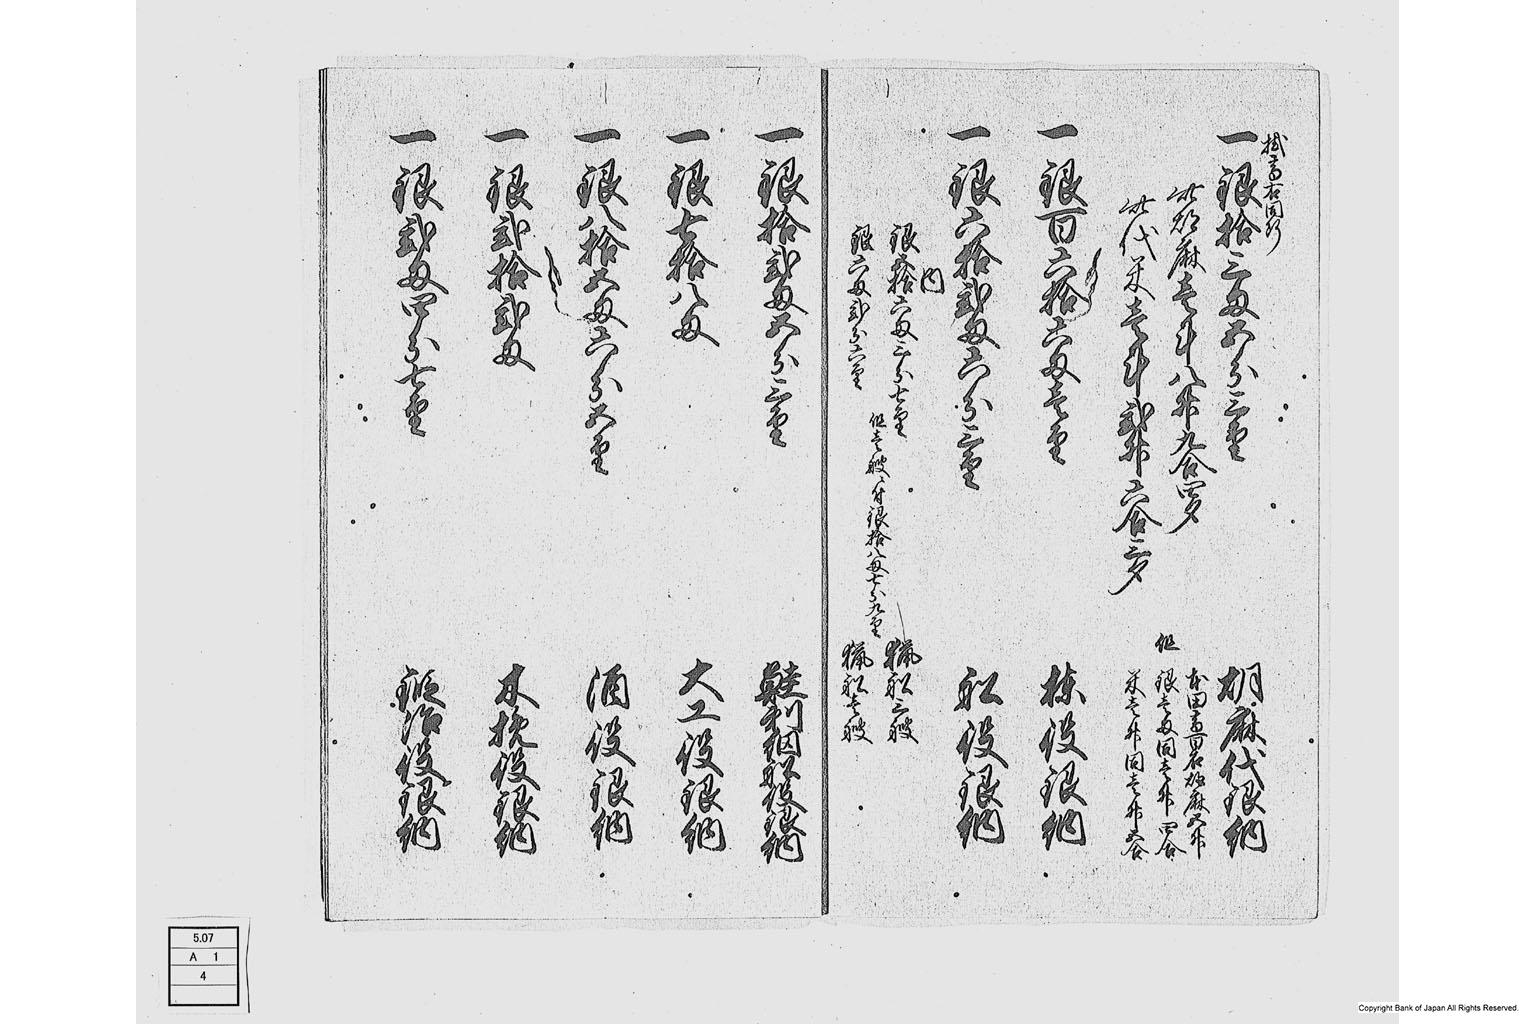 掛高右同断
一銀拾三匁五分三厘
胡麻代銀納
此胡麻壱斗八升九合四夕
此代米壱斗弐升六合三夕
但
本田高百石胡麻五升
銀壱匁同壱升四合
米壱升同壱升五合
一銀百六拾六匁壱厘
棟役銀納
一銀六拾弐匁六分三厘
船役銀納
内
銀拾六匁三分七厘
猟船三艘
但壱艘ニ付銀拾八匁七分九厘
銀六匁弐分六厘
猟船壱艘
一銀拾弐匁五分三厘
鮭川船役銀納
一銀七拾八匁
大工役銀納
一銀八拾五匁六分五厘
酒役銀納
一銀弐拾弐匁
木挽役銀納
一銀弐匁四分七厘
鍛冶役銀納
5.07
A 1
4
Copyright Bank of Japan All Rights Reserved.